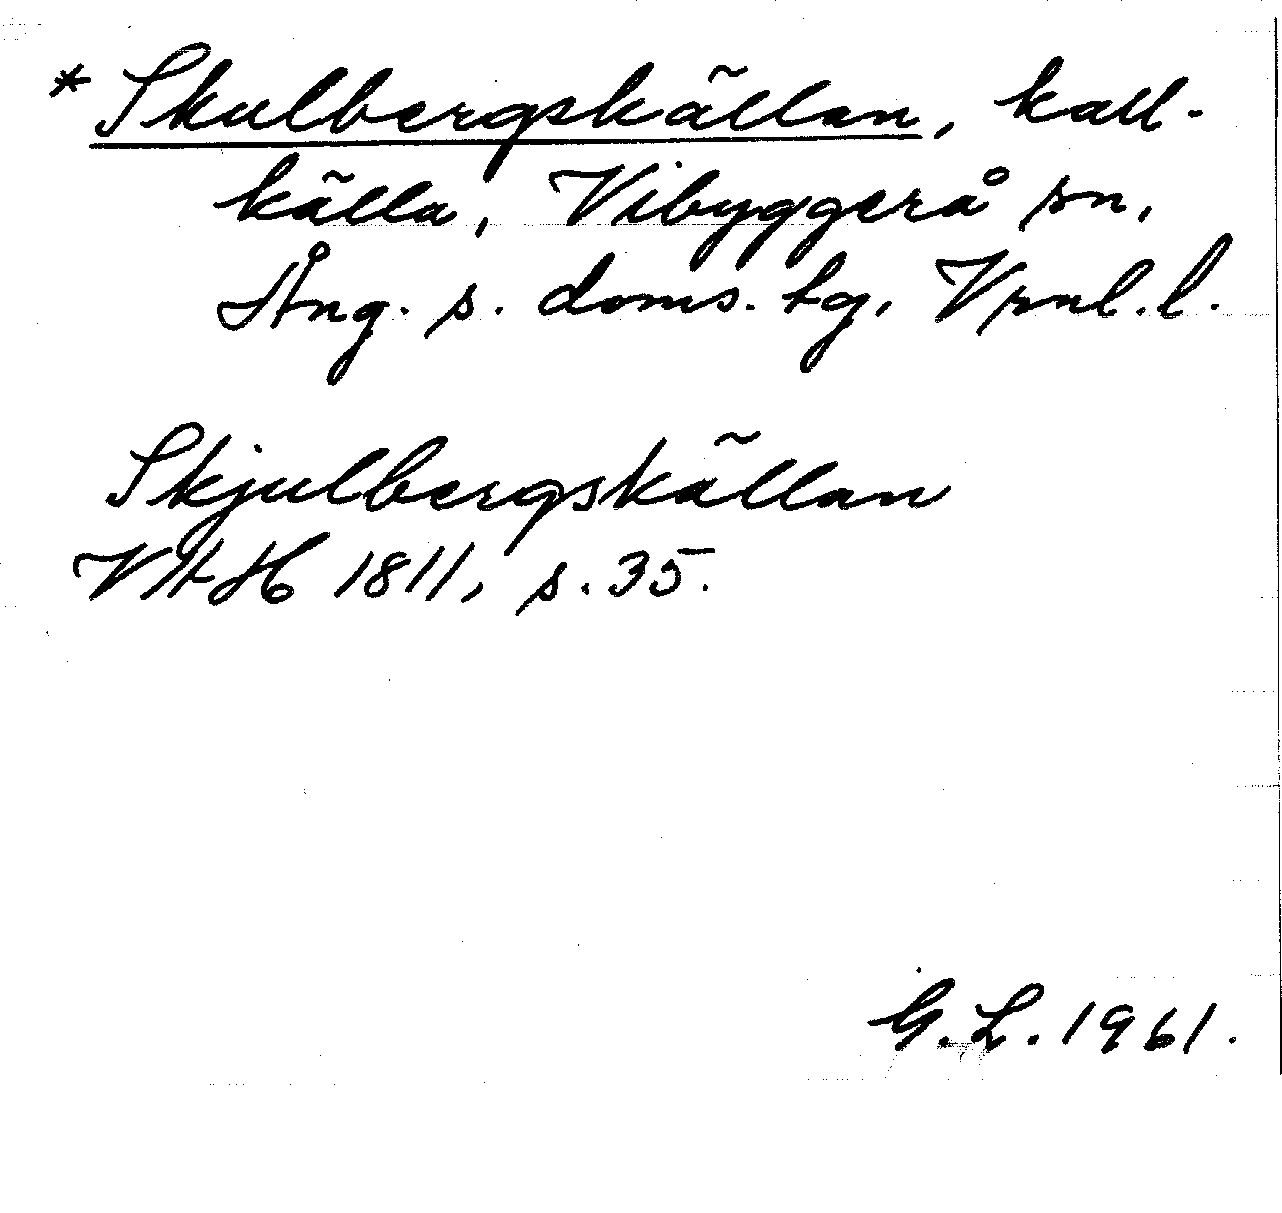 * Skulbergskällan, kall-
källa, Vibyggerå sn,
Ång. s. doms. tg, Vrnl. l.
Skjulbergskällan
VAH 1811, s. 35.
G. L. 1961.